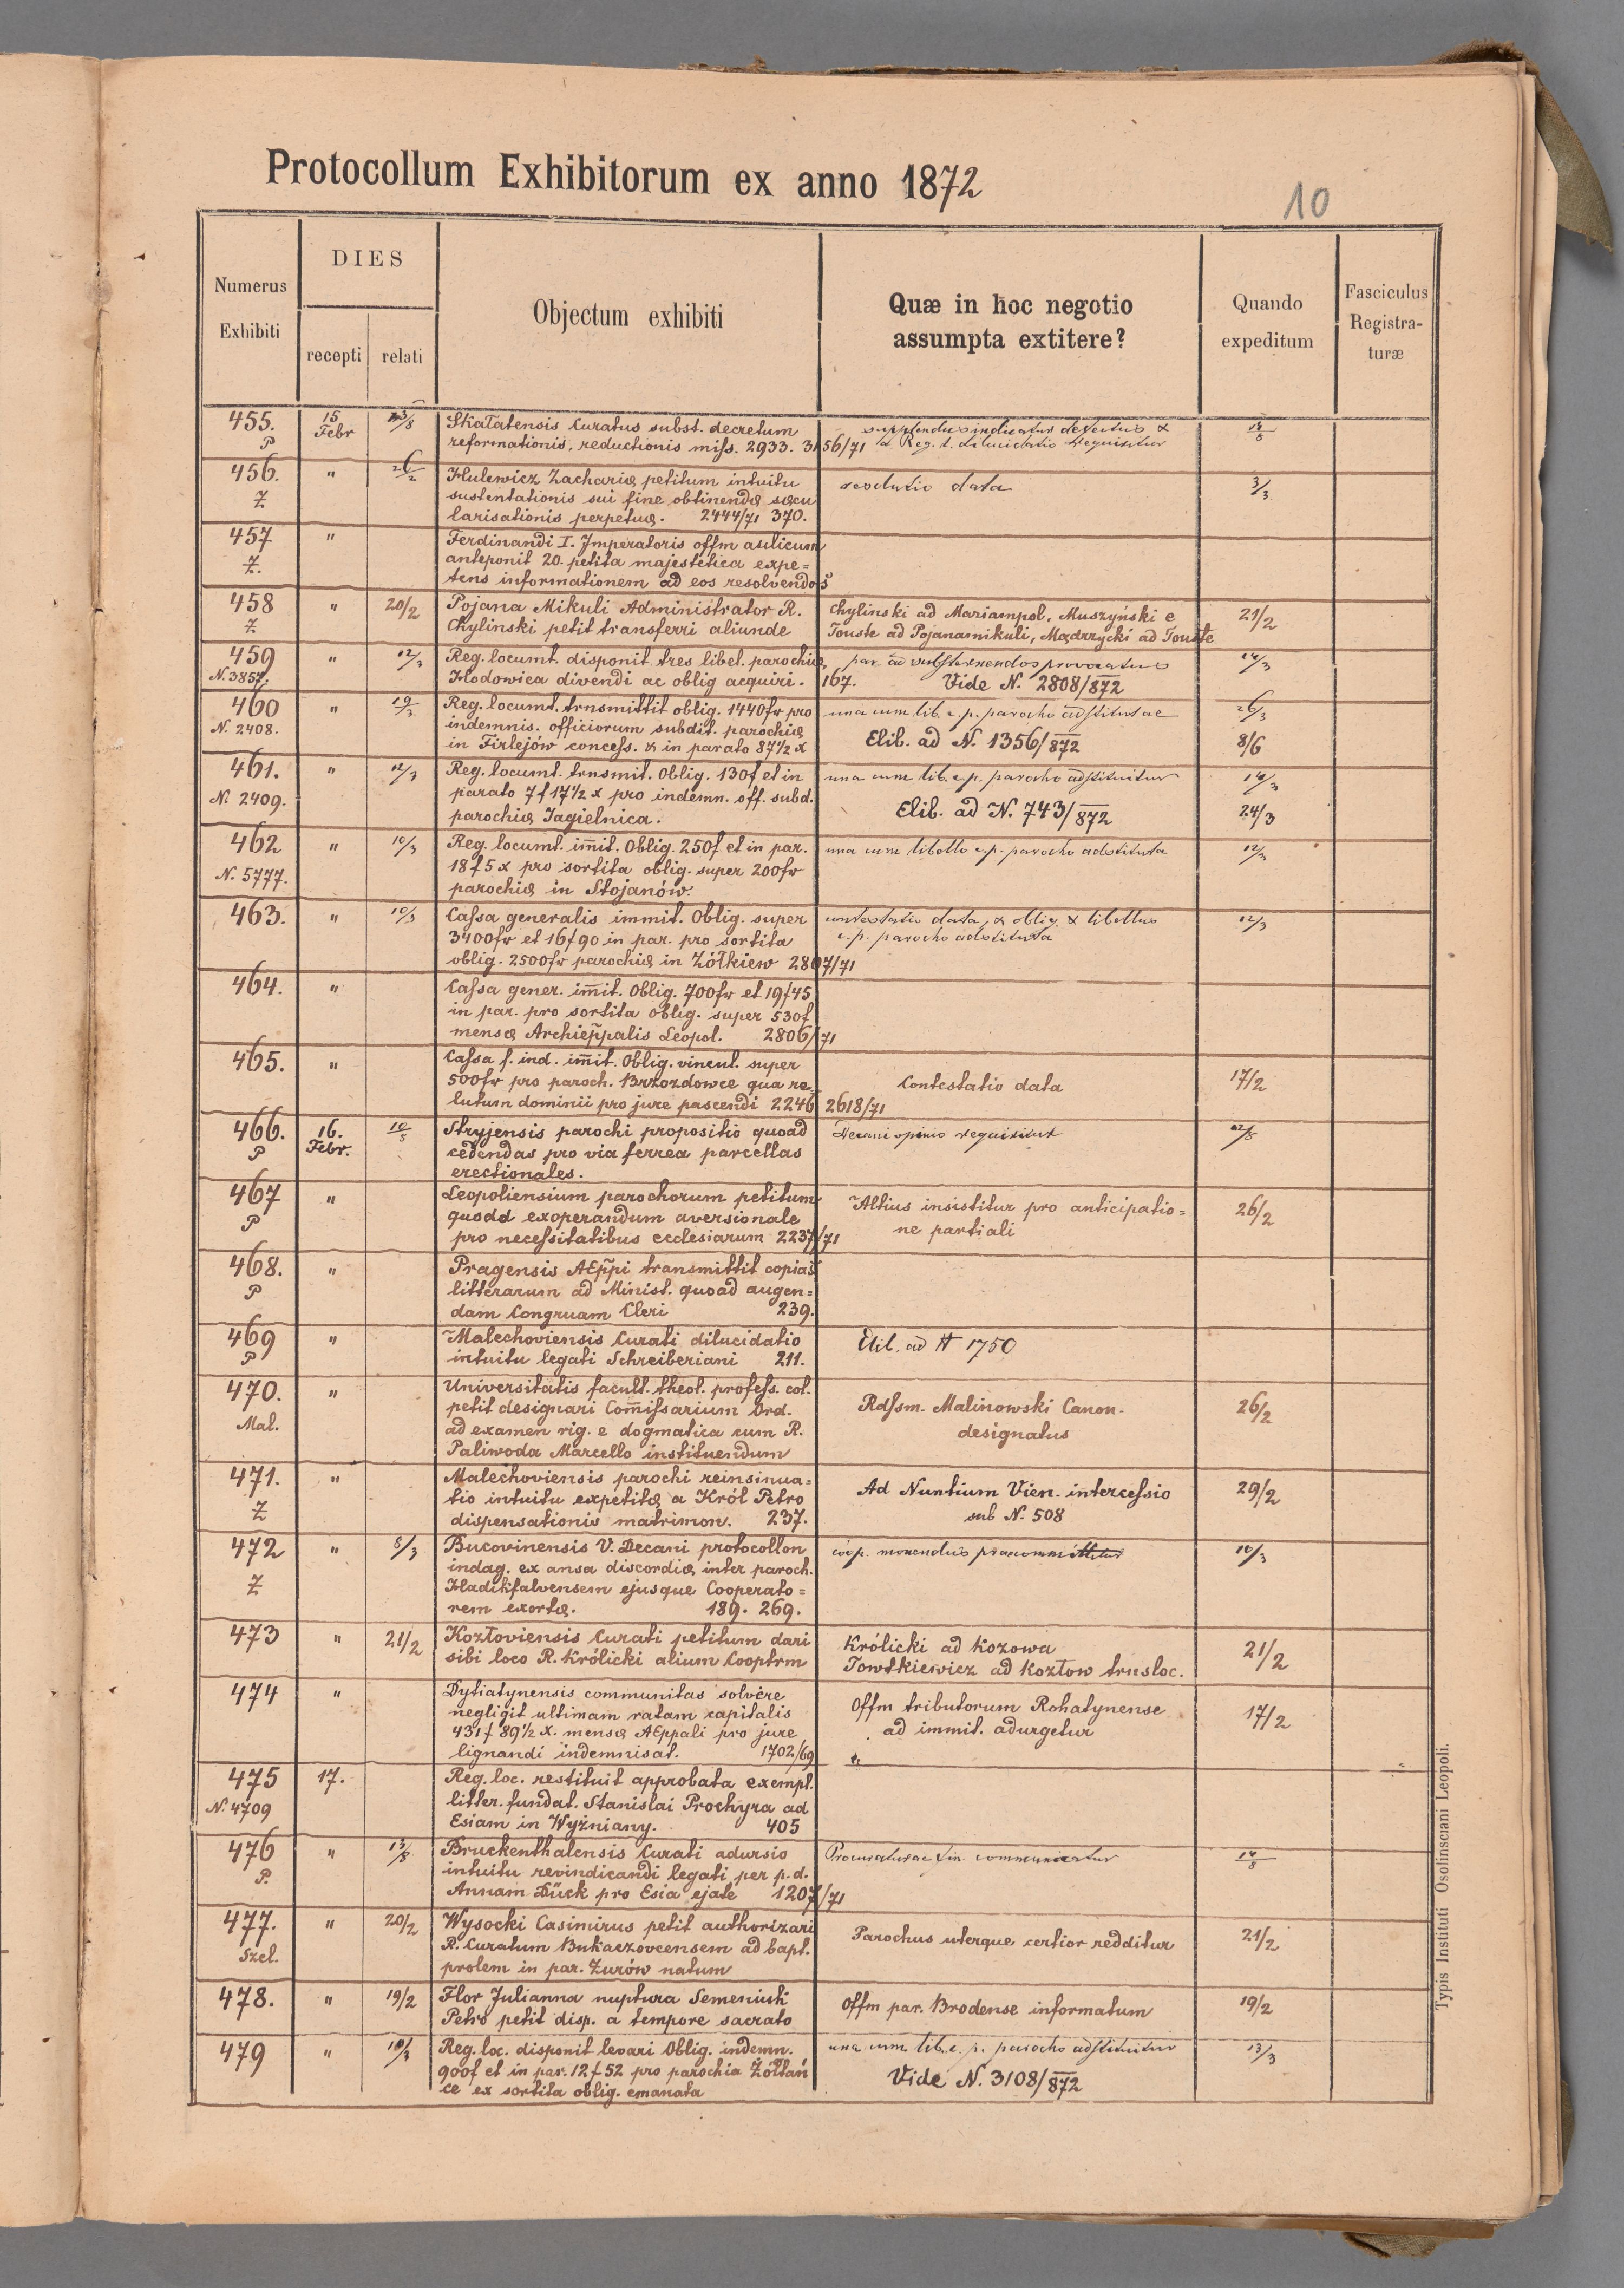 Protocollum Exhibitorum ex anno 1872
10
Numerus Exhibiti
DIES
recepti
relati
Objectum exhibiti
Quæ in hoc negotio
assumpta extitere?
Quando
expeditum
Fasciculus
Registra-
turæ
455. P
15 Febr
Skałatensis Curatus subst. decretum
reformationis, reductionis miss. 2933. 3156/71
supplendus indicatur defectus &
a Reg. l. dilucidatio requiritur
456. Z
"
26/2
Hulewicz Zachariæ petitum intuitu
sustentationis sui fine obtinendæ sæcu
larisationis perpetuæ. 2444/71 370.
resolutio data
3/3
457 Z.
"
Ferdinandi I. Imperatoris offm aulicum
anteponit 20. petita majestetica expe=
tens informationem ad eos resolvendos
458 Z
"
20/2
Pojana Mikuli Administrator R.
Chylinski petit transferri aliunde
Chylinski ad Mariampol, Muszyński e
Touste ad Pojanamikuli, Mądrzycki ad Touste
21/2
459
N. 3857.
"
12/3
Reg. locumt. disponit tres libel. parochiæ
Hodowica divendi ac oblig acquiri. 167.
par. ad substernendos provocatus
Vide N. 2808/872
14/3
460
N. 2408.
"
19/3
Reg. locumt. trnsmittit oblig. 1440fr pro
indemnis. officiorum subdit. parochiæ
in Firlejów concess. & in parato 87½ x
una cum lib. c. p. parocho adstitutae
Elib. ad N. 1356/872
26/3
8/6
461.
N. 2409.
"
12/3
Reg. locumt. trnsmit. Oblig. 130f et in
parato 7f 17½ x pro indemn. off. subd.
parochiæ Jagielnica.
una cum lib. c. p. parocho adstituitur
Elib. ad N. 743/872
14/3
24/3
462
N. 5777.
"
10/3
Reg. locumt. im̄it. Oblig. 250f et in par.
18f 5x pro sortita oblig. super 200fr
parochiæ in Stojanów.
una cum libello c. p. parocho adstituta
12/3
463.
"
10/3
Cassa generalis immit. Oblig. super
3400fr et 16f90 in par. pro sortita
oblig. 2500fr parochiæ in Żółkiew 2807/71
contestatio data, & oblig. & libellus
c. p. parocho adstituta
12/3
464.
"
Cassa gener. im̄it. Oblig. 700fr et 19f45
in par. pro sortita oblig. super 530f
mensæ Archiep̄palis Leopol. 2806/71
465.
"
Cassa f. ind. im̄it. Oblig. vincul. super
500fr pro paroch. Brzozdowce qua re
lutum dominii pro jure pascendi 2246 2618/71
Contestatio data
17/2
466. P
16. Febr.
10/5
Stryjensis parochi propositio quoad
cedendas pro via ferrea parcellas
erectionales.
Decani opinio requiritur
12/5
467 P
"
Leopoliensium parochorum petitum
quoad exoperandum aversionale
pro necessitatibus ecclesiarum 2237/71
Altius insistitur pro anticipatio=
ne partiali
26/2
468. P
"
Pragensis AEp̄pi transmittit copias
litterarum ad Minist. quoad augen=
dam Congruam Cleri 239.
469 P
"
Malechoviensis Curati dilucidatio
intuitu legati Schreiberiani 211.
Elib. ad N 1750
470. Mal.
"
Universitatis facult. theol. profess. col.
petit designari Com̄issarium Ord.
ad examen rig. e dogmatica cum R.
Paliwoda Marcello instituendum
Rdssm. Malinowski Canon.
designatus
26/2
471. Z
"
Malechoviensis parochi reinsinua=
tio intuitu expetitæ a Król Petro
dispensationis matrimon. 237.
Ad Nuntium Vien. intercessio
sub N. 508
29/2
472 Z
"
8/3
Bucovinensis V. Decani protocollon
indag. ex ansa discordiæ inter paroch.
Hadikfalvensem ejusque Cooperato=
rem exortæ. 189. 269.
coop. monendus
10/3
473
"
21/2
Kozłoviensis Curati petitum dari
sibi loco R. Królicki alium Cooptrm
Królicki ad Kozowa
Towtkiewicz ad Kozłow trnsloc.
21/2
474
"
Dytiatynensis communitas solvere
negligit ultimam ratam capitalis
431f 89½ x. mensæ AEppali pro jure
lignandi indemnisat. 1702/69
Offm tributorum Rohatynense
ad immit. adurgetur
17/2
475
N. 4709
17.
Reg. loc. restituit approbata exempl.
litter. fundat. Stanislai Prochyra ad
Esiam in Wyżniany. 405
476 P.
"
13/8
Bruckenthalensis Curati adursio
intuitu revindicandi legati per p. d.
Annam Dück pro Esia ejate 1207/71
Procuraturae fin. communicatur
14/8
477. Szel.
"
20/2
Wysocki Casimirus petit authorizari
R. Curatum Bukaczovcensem ad bapt.
prolem in par. Żurów natum
Parochus uterque certior redditur
21/2
478.
"
19/2
Flor Julianna nuptura Semeniuk
Petro petit disp. a tempore sacrato
Offm par. Brodense informatum
19/2
479
"
10/3
Reg. loc. disponit levari Oblig. indemn.
900f et in par. 12f 52 pro parochia Żółtań
ce ex sortita oblig. emanata
una cum lib. c. p. parocho adstituitur
Vide N. 3108/872
13/3
Typis Instituti Ossolinsciani Leopoli.